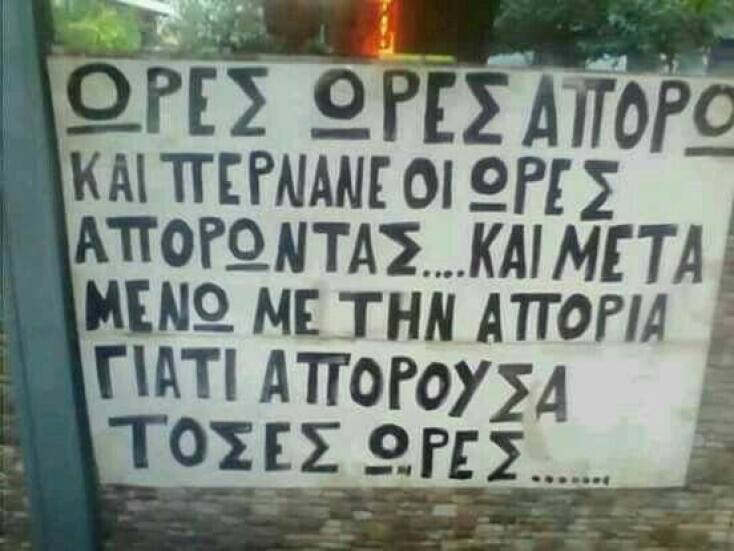 ΩΡΕΣ ΩΡΕΣ ΑΠΟΡΩ
ΚΑΙ ΠΕΡΝΑΝΕ ΟΙ ΩΡΕΣ
ΑΠΟΡΩΝΤΑΣ.....ΚΑΙ ΜΕΤΑ
ΜΕΝΩ ΜΕ ΤΗΝ ΑΠΟΡΙΑ
ΓΙΑΤΙ ΑΠΟΡΟΥΣΑ
ΤΟΣΕΣ ΩΡΕΣ.......